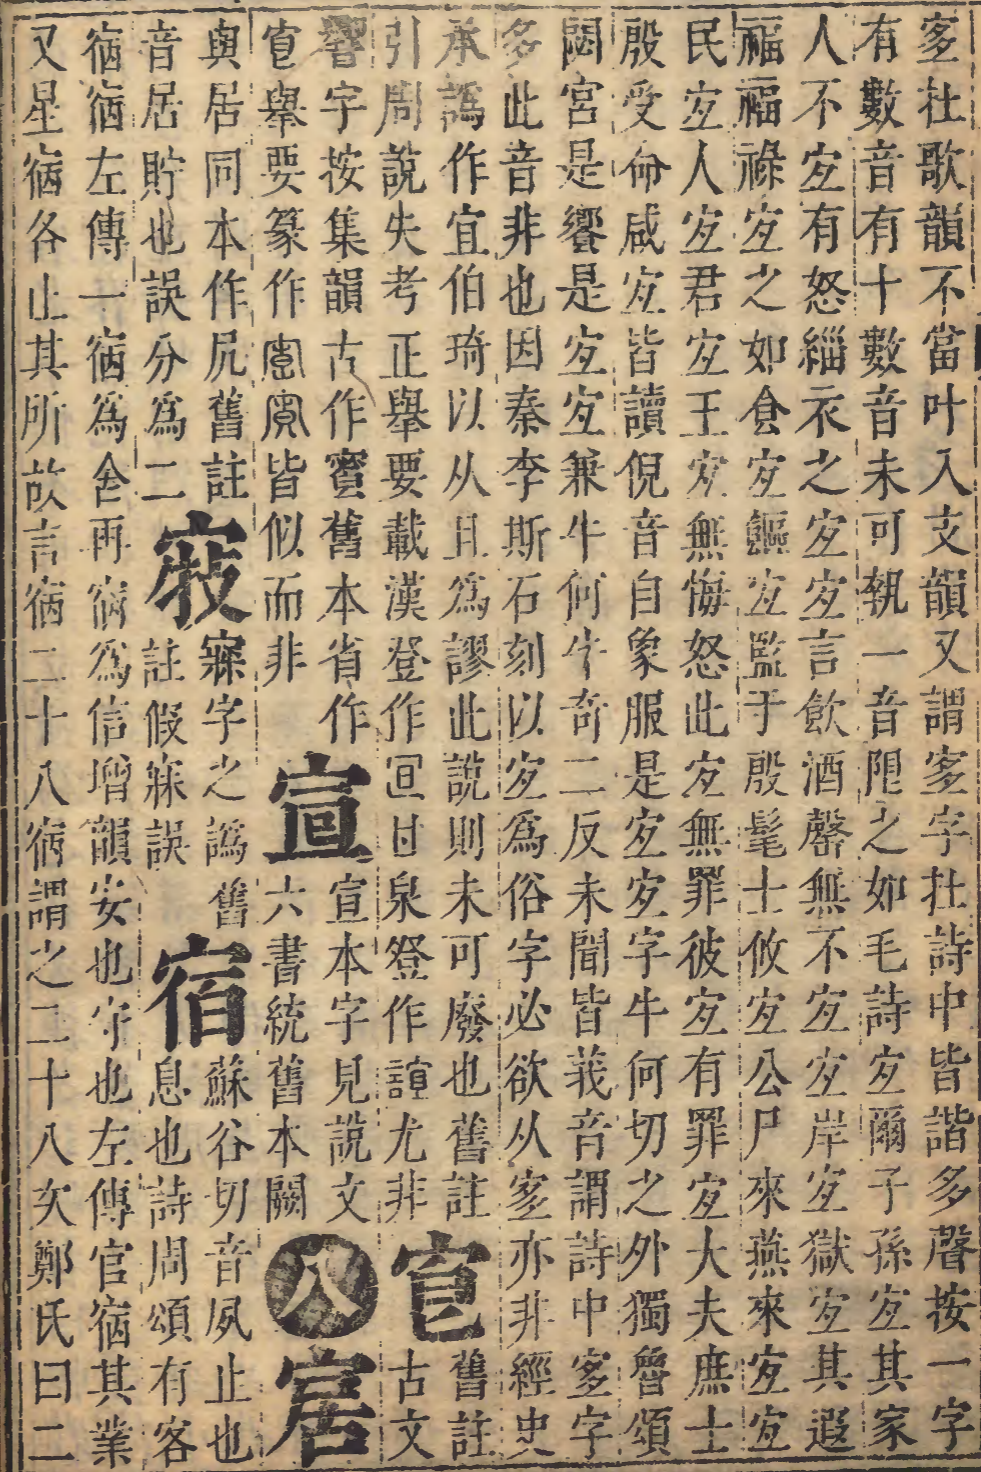 宐杜歌韻不當叶入支韻又謂宐字杜詩中皆諧多聲按一字
有數音有十數音未可執一音阻之如毛詩宐爾子孫宐其家
人不宐有怒緇衣之宐宐言飲酒罄無不宐宐岸宐獄宐其遐
福福祿宐之如食宐饇宐監于殷髦士攸宐公尸來燕來宐宐
民宐人宐君宐王宐無悔怒此宐無罪彼宐有罪宐大夫庶士
殷受命咸宐皆讀倪音自象服是宐宐字牛何切之外獨魯頌
閟宮是饗是宐宐兼牛何牛奇二反未聞皆莪音謂詩中宐字
多此音非也因秦李斯石刻以宐為俗字必欲从宐亦非經史
承譌作宜伯琦以从且為謬此說則未可廢也舊註
引周說失考正舉要載漢登作囬甘泉豋作諠尤非
官
舊註
古文
響字按集韻古作寳舊本省作
官舉要篆作𡧧𡧧皆似而非
宣
宣本字見說文
六書統舊本闕
八
宭
與居同本作凥舊註
音居貯也誤分為二
㝱
寐字之譌舊
註假寐誤
宿
蘇谷切音夙止也
息也詩周頌有客
宿宿左傳一宿為舍再宿為信增韻安也守也左傳官宿其業
又星宿各止其所故言宿二十八宿謂之二十八次鄭氏曰二